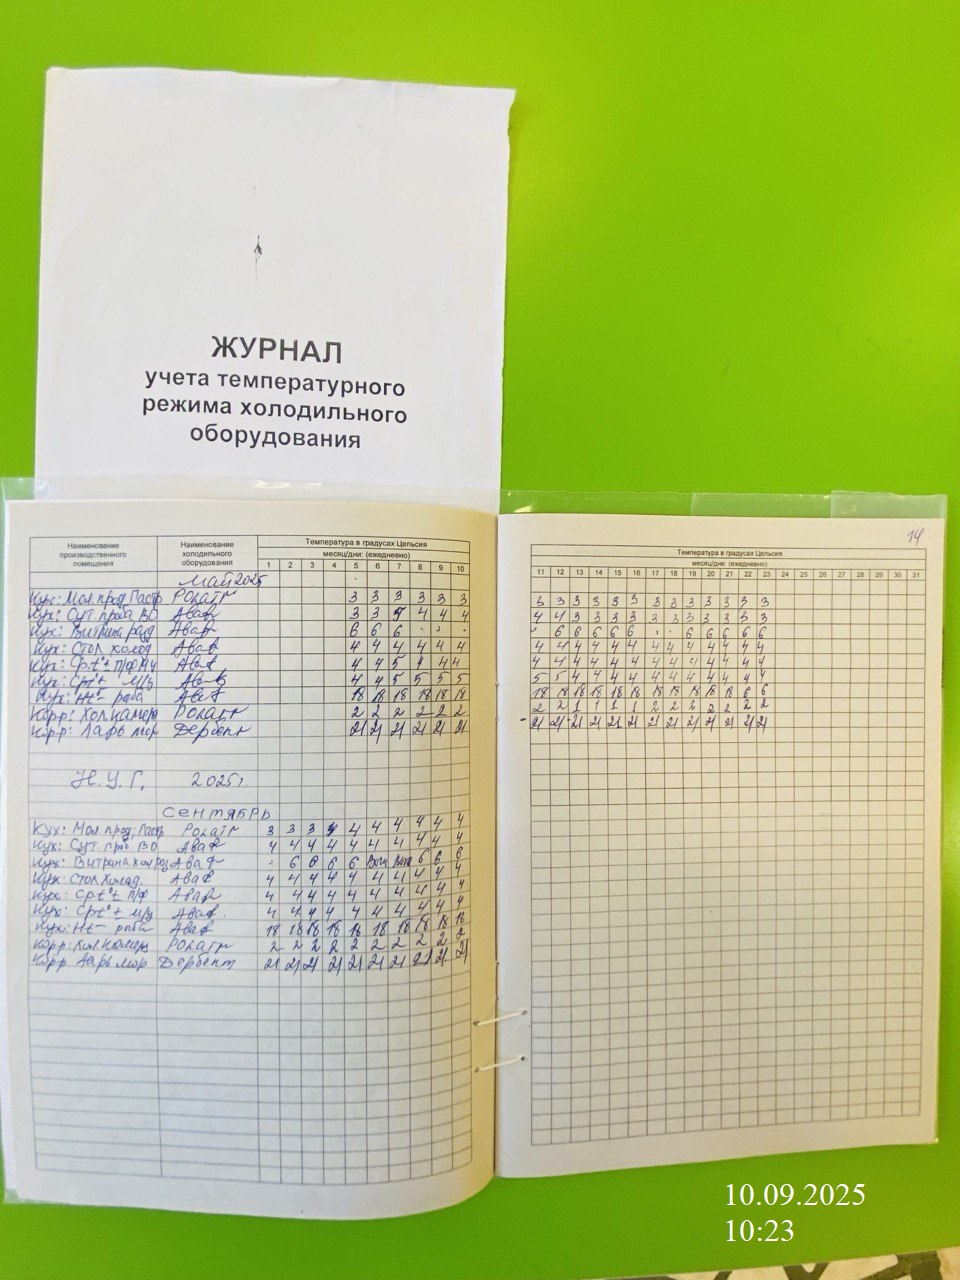 ЖУРНАЛ
учета температурного
режима холодильного
оборудования
14
Наименование производственного помещения
Наименование холодильного оборудования
Температура в градусах Цельсия
месяц/дни: (ежедневно)
1 2 3 4 5 6 7 8 9 10
Температура в градусах Цельсия
месяц/дни: (ежедневно)
11 12 13 14 15 16 17 18 19 20 21 22 23 24 25 26 27 28 29 30 31
Май 2025
Кух: Мол. прод. Гастр 3 3 3 3 3 3 3 3 3 3 3 3 3 3 3 3 3 3 3
Кух: Сут. проба ВО 3 3 4 4 4 4 4 3 3 3 3 3 3 3 3 3 3 3
Кух: Витрина 6 6 6 6 6 6 6 6 6 6 6 6 6
Кух: Стол холод 4 4 4 4 4 4 4 4 4 4 4 4 4 4 4 4 4 4 4
Кух: 4 4 5 4 4 4 4 4 4 4 4 4 4 4 4 4 4 4
Кух: 4 4 5 5 5 5 5 5 4 4 4 4 4 4 4 4 4 4 4
Кух: 18 18 18 18 18 18 18 18 18 18 18 18 18 18 18 18 18
Корр: Хол камера 2 2 2 2 2 2 2 2 1 1 1 1 2 2 2 2 2 2 2
Корр: Ларь мор Дербент 21 21 21 21 21 21 21 21 21 21 21 21 21 21 21 21 21 21 21
Н.У.Г. 2025г.
Сентябрь
Кух: Мол. прод. Гастр 3 3 3 4 4 4 4 4 4
Кух: Сут. проб. ВО 4 4 4 4 4 4 4 4 4 4
Кух: Витрина 6 6 6 6 6 6 6
Кух: Стол холод. 4 4 4 4 4 4 4 4 4 4
Кух: 4 4 4 4 4 4 4 4 4 4
Кух: 4 4 4 4 4 4 4 4 4 4
Кух: 18 18 18 18 18 18 18 18 18 18
Корр: Хол камера 2 2 2 2 2 2 2 2 2 2
Корр: Ларь мор Дербент 21 21 21 21 21 21 21 21 21 21
10.09.2025
10:23